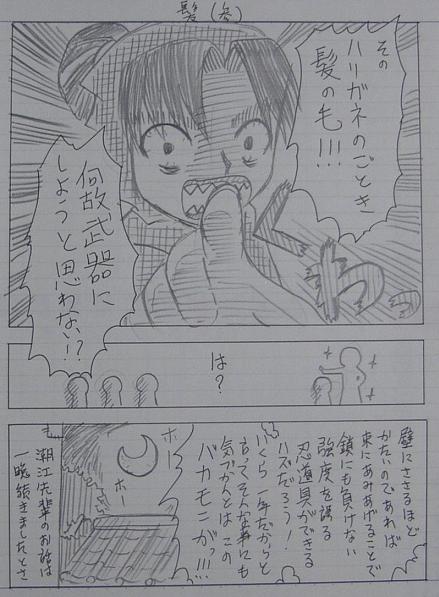 髪(参)
その
ハリガネのごとき
髪の毛!!!
何故武器に
しようと思わない!?
わっ
は?
壁にささるほど
かたいのであれば
束にあみあげることで
鎖にも負けない
強度を誇る
忍道具ができる
ハズだろう!
いくら一年だからと
言ってそんな事にも
気づかんとは この
バカモンがっ!!!
ホー
ホー
潮江先輩のお話は
一晩続きましたとさ